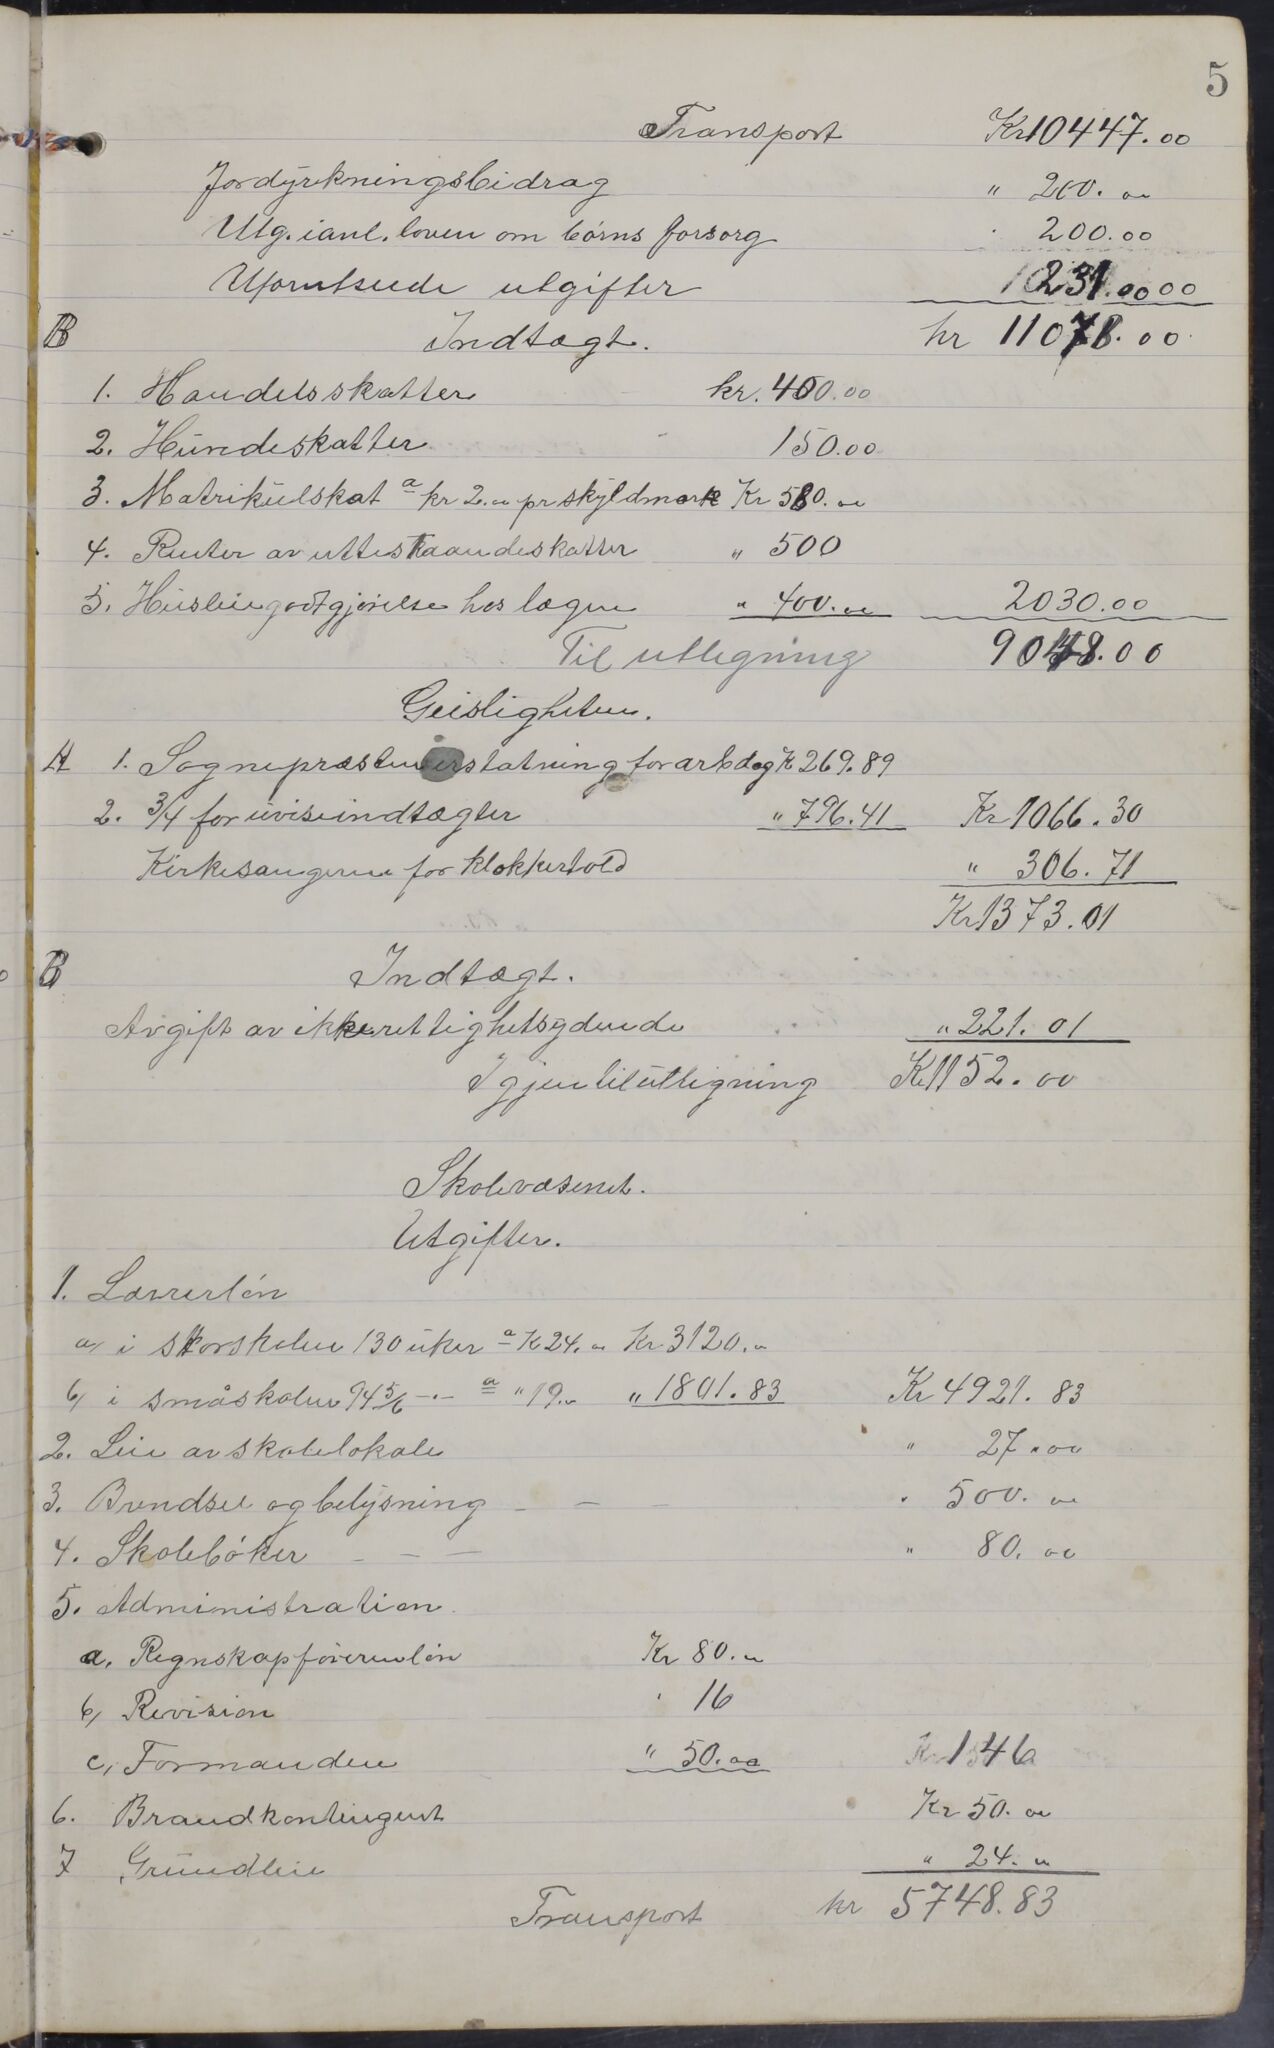 5
Transport Kr 10447.00
Jordyrkningsbidrag " 200.00
Utg. i anl. loven om børns forsorg " 200.00
Uforutseede utgifter 231.00
B Indtægt. kr 11078.00
1. Handelsskatter kr. 400.00
2. Hundeskatter 150.00
3. Matrikulskat a kr 2.00 pr skyldmark Kr 580.00
4. Renter av uttestaaendeskatter " 500
5. Husleiegodtgjørelse hos lægen " 400.00 2030.00
Til utlegning 9048.00
Geistligheten.
A 1. Sognepræsten erstatning for arbdag K 269.89
2. 3/4 for uviseindtægter " 796.41 Kr 1066.30
Kirkesangeren for klokkertold " 306.71
Kr 1373.01
B Indtægt.
Avgift av ikkerettighetsydende " 221.01
Igjen til utligning Kr 1152.00
Skolevæsenet.
Utgifter.
1. Lærerløn
a, i storskolen 130 uker a K 24.00 Kr 3120.00
b, i småskolen 94 5/6 -"- a " 19.00 " 1801.83 Kr 4921.83
2. Leie av skolelokale " 27.00
3. Brendsel og belysning - - - " 500.00
4. Skolebøker - - - " 80.00
5. Administration.
a. Regnskapførerenløn Kr 80.00
b, Revision " 16
c, Formanden " 50.00 Kr 146
6. Brandkontingent Kr 50.00
7 Grundleie " 24.00
Transport kr 5748.83